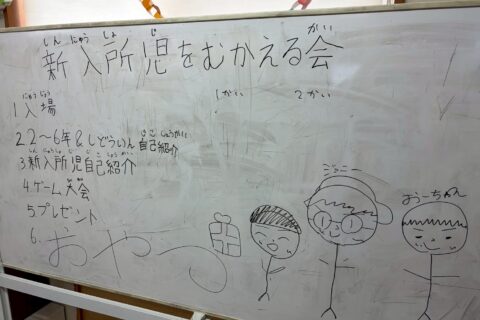 新入所児をむかえる会
しんにゅうしょじ かい
1かい 2かい
1入場
にゅうじょう
2.2～6年&しどういん自己紹介
じこしょうかい
3.新入所児自己紹介
しんにゅうしょじじこしょうかい
4.ゲーム大会
5プレゼント
6.おやつ
おうちゃん